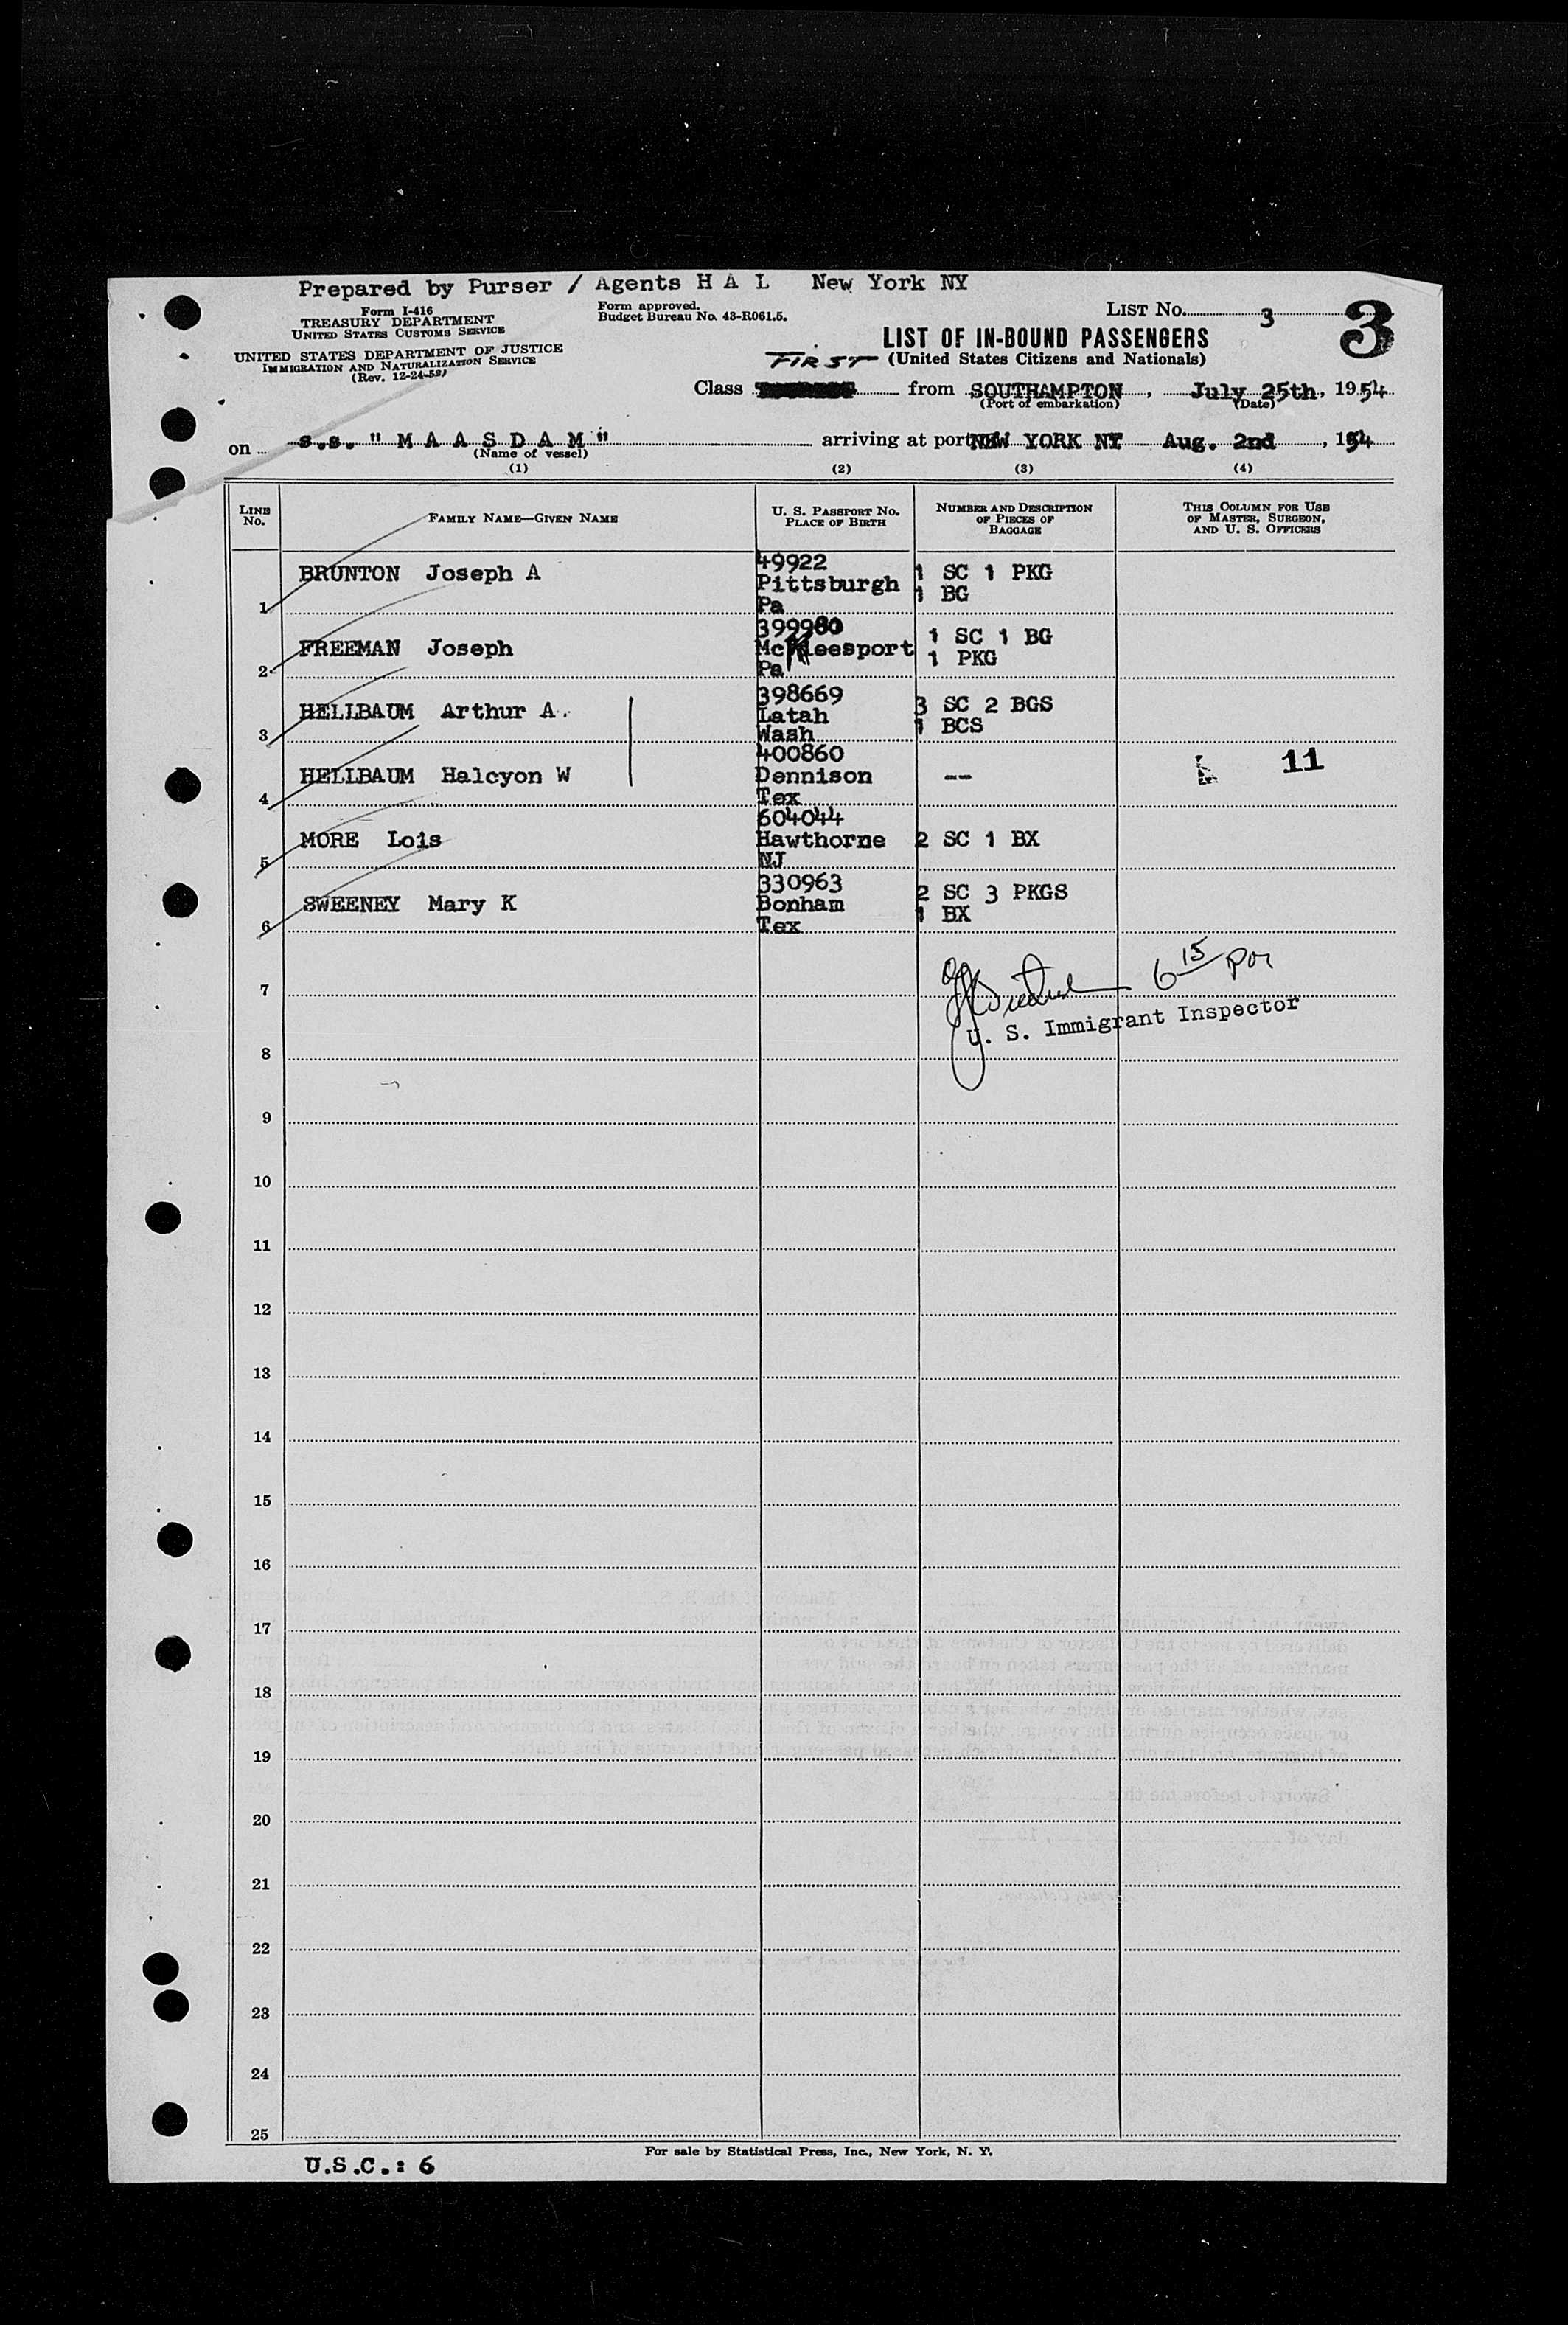 Prepared by Purser / Agents H A L New York NY
Form I-416
TREASURY DEPARTMENT
UNITED STATES CUSTOMS SERVICE
UNITED STATES DEPARTMENT OF JUSTICE
IMMIGRATION AND NATURALIZATION SERVICE
(Rev. 12-24-52)
Form approved.
Budget Bureau No. 43-R061.5.
LIST No. 3
3
LIST OF IN-BOUND PASSENGERS
FIRST (United States Citizens and Nationals)
Class from SOUTHAMPTON, July 25th, 1954
(Port of embarkation) (Date)
on s.s. " M A A S D A M " arriving at port of NEW YORK NY Aug. 2nd, 1954
(Name of vessel)
(1) (2) (3) (4)
LINE No. FAMILY NAME—GIVEN NAME U. S. PASSPORT No. PLACE OF BIRTH NUMBER AND DESCRIPTION OF PIECES OF BAGGAGE THIS COLUMN FOR USE OF MASTER, SURGEON, AND U. S. OFFICERS
1 BRUNTON Joseph A 49922 Pittsburgh Pa 1 SC 1 PKG 1 BG
2 FREEMAN Joseph 399980 McKeesport Pa 1 SC 1 BG 1 PKG
3 HELLBAUM Arthur A. 398669 Latah Wash 3 SC 2 BGS 1 BCS
4 HELLBAUM Halcyon W 400860 Dennison Tex -- 11
5 MORE Lois 604044 Hawthorne NJ 2 SC 1 BX
6 SWEENEY Mary K 330963 Bonham Tex 2 SC 3 PKGS 1 BX
6 15 pm
7
U. S. Immigrant Inspector
8
9
10
11
12
13
14
15
16
17
18
19
20
21
22
23
24
25
For sale by Statistical Press, Inc., New York, N. Y.
U.S.C.: 6